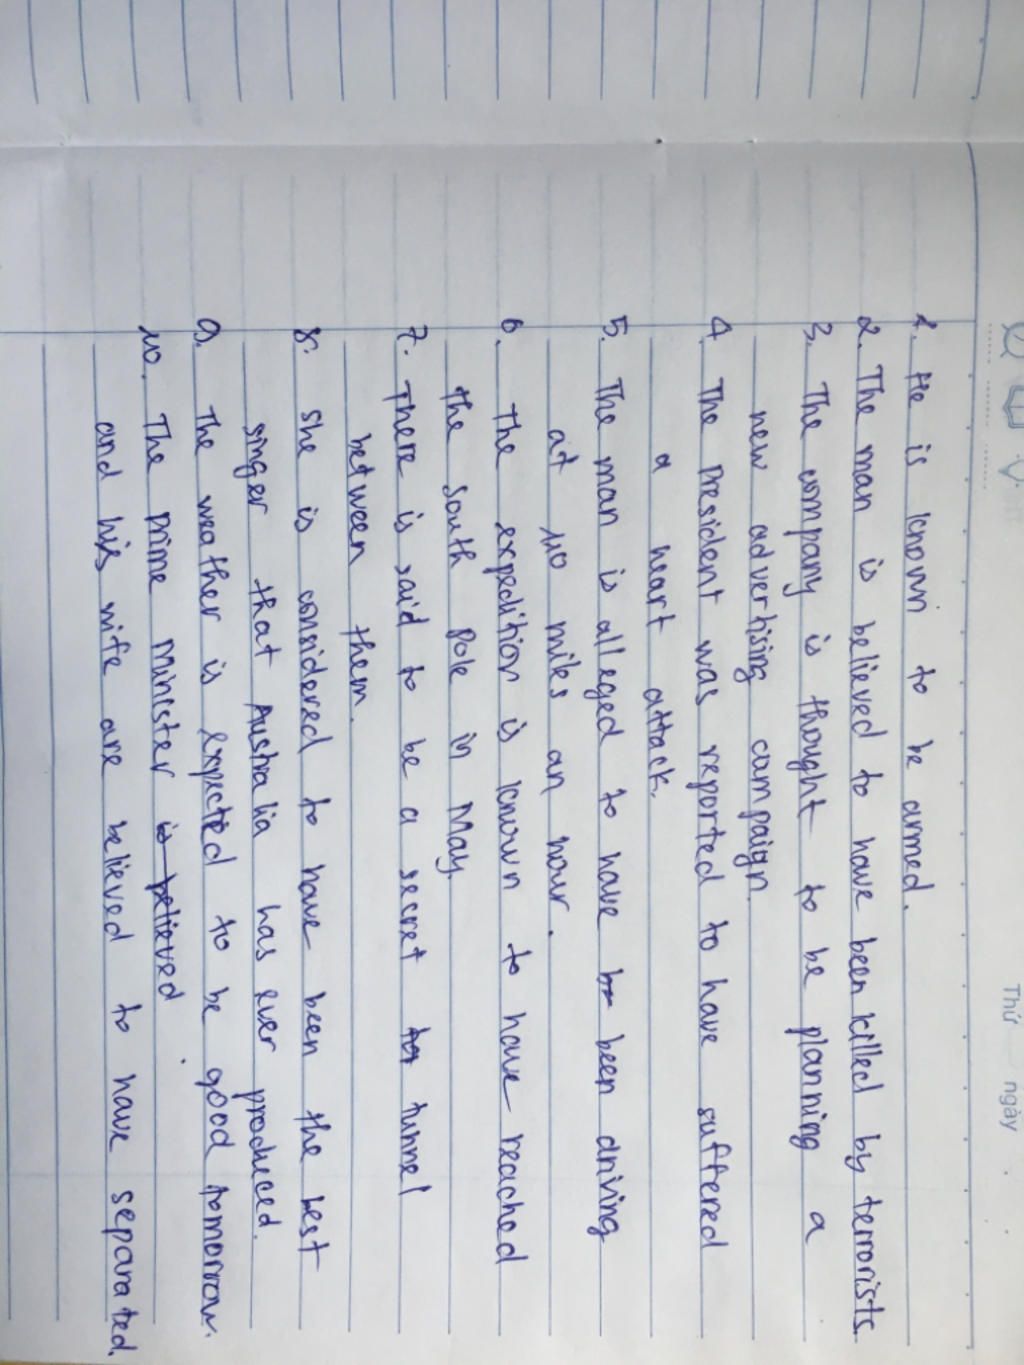 Thứ ngày
1. He is known to be armed.
2. The man is believed to have been killed by terrorists.
3. The company is thought to be planning a
new advertising campaign.
4. The president was reported to have suffered
a heart attack.
5. The man is alleged to have been driving
at 110 miles an hour.
6. The expedition is known to have reached
the south pole in May.
7. There is said to be a secret tunnel
between them.
8. She is considered to have been the best
singer that Australia has ever produced.
9. The weather is expected to be good tomorrow.
10. The prime minister is believed
and his wife are believed to have separated.